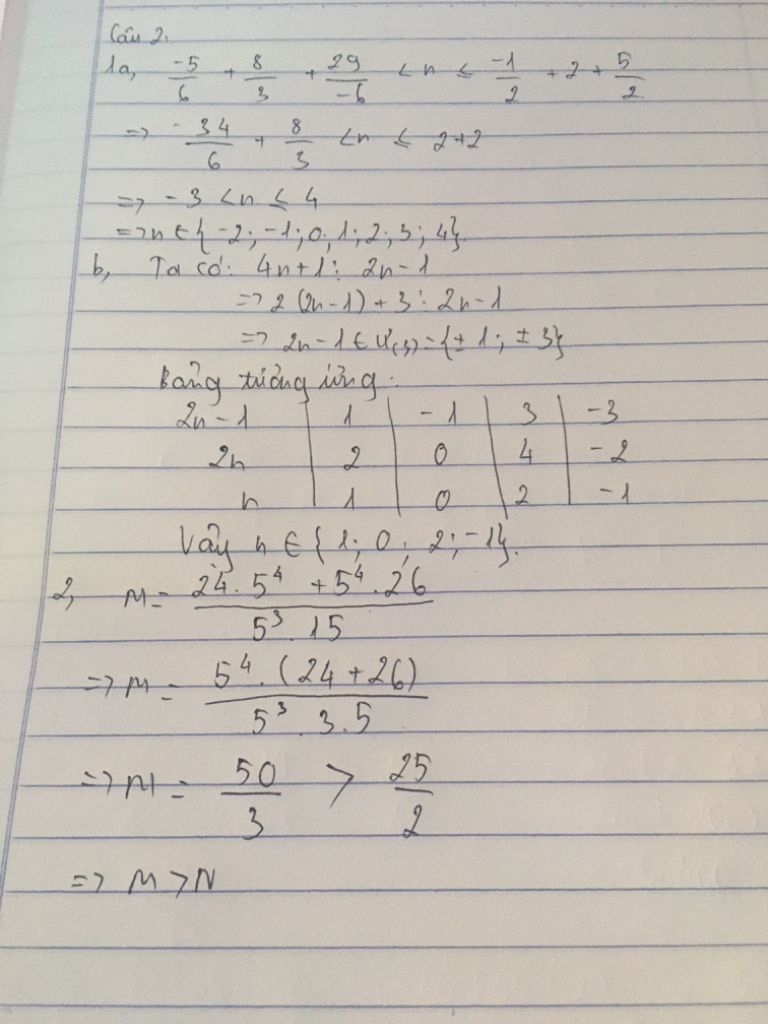 Câu 2:
1a, -5/6 + 8/3 + 29/-6 < n ≤ -1/2 + 2 + 5/2
=> -34/6 + 8/3 < n ≤ 2+2
=> -3 < n ≤ 4
=> n ∈ { -2; -1; 0; 1; 2; 3; 4}
b, Ta có: 4n+1 ⋮ 2n-1
=> 2 (2n-1) + 3 ⋮ 2n-1
=> 2n-1 ∈ Ư(3) = {± 1; ± 3}
Bảng tương ứng:
2n-1 | 1 | -1 | 3 | -3
2n | 2 | 0 | 4 | -2
n | 1 | 0 | 2 | -1
Vậy n ∈ { 1; 0; 2; -1}.
2, M = (24. 5⁴ + 5⁴. 26)/(5³. 15)
=> M = (5⁴. (24 + 26))/(5³. 3. 5)
=> M = 50/3 > 25/2
=> M > N